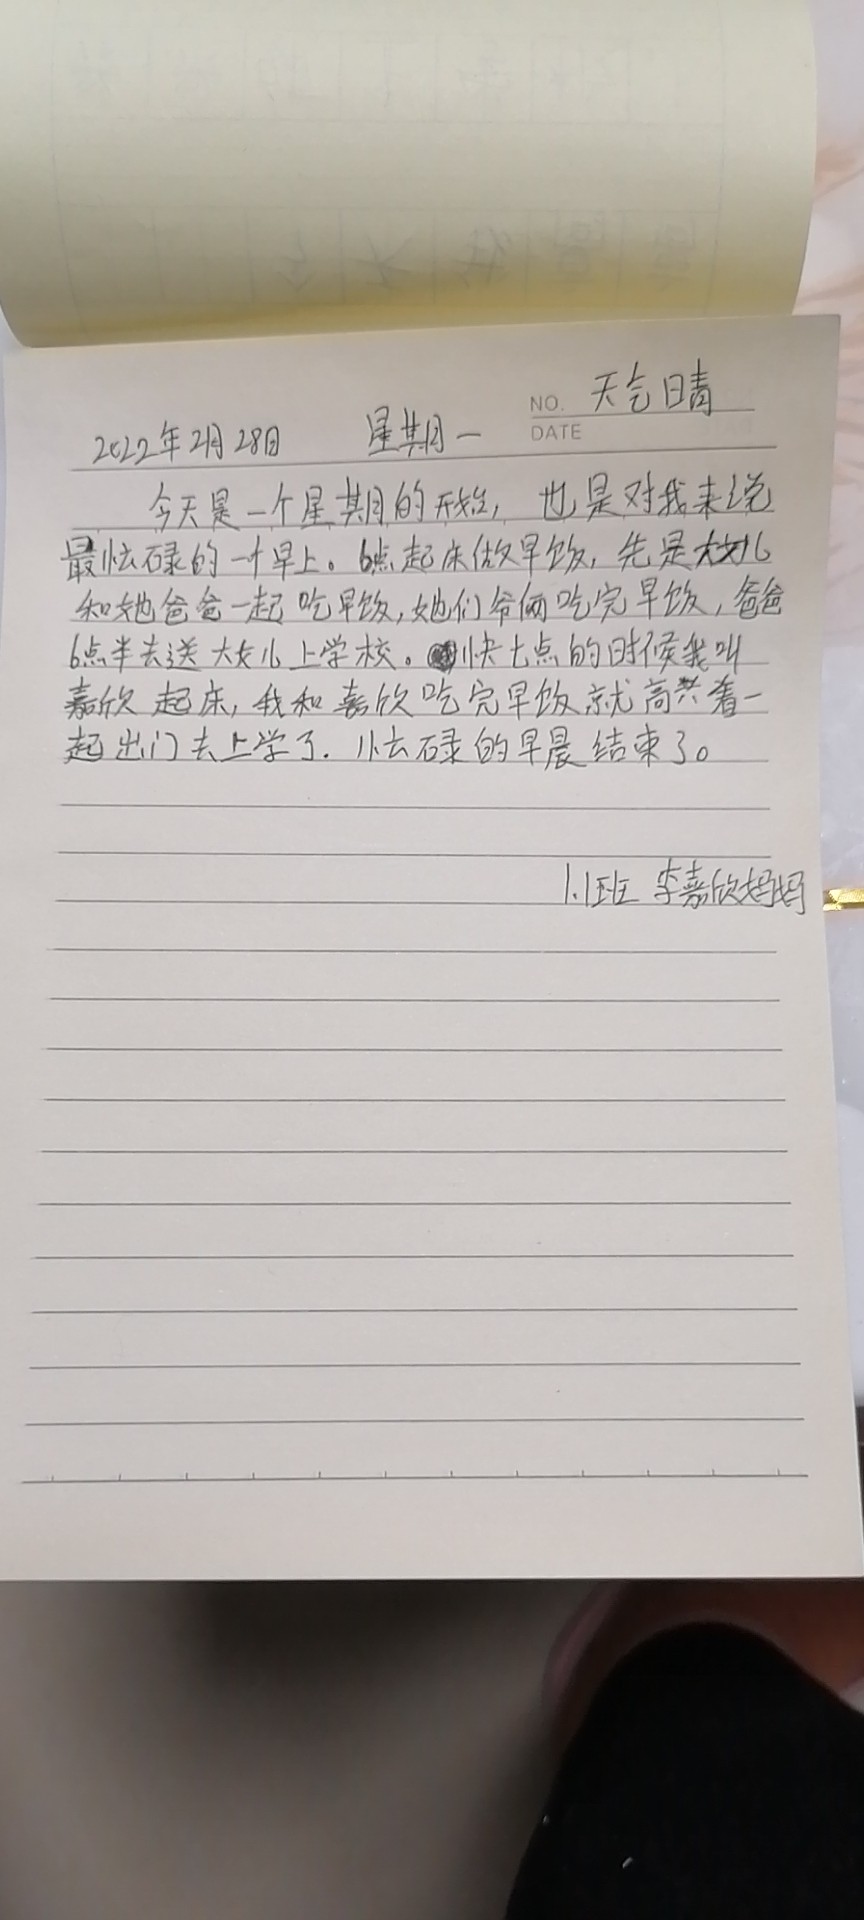 NO. 天气日青
DATE
2022年2月28日 星期一
今天是一个星期的开始, 也是对我来说
最忙碌的一个早上。6点起床做早饭, 先是大女儿
和她爸爸一起吃早饭, 她们爷俩吃完早饭, 爸爸
6点半去送大女儿上学校。快七点的时候我叫
嘉欣起床, 我和嘉欣吃完早饭就高兴着一
起出门去上学了. 忙碌的早晨结束了。
1.1班 李嘉欣妈妈